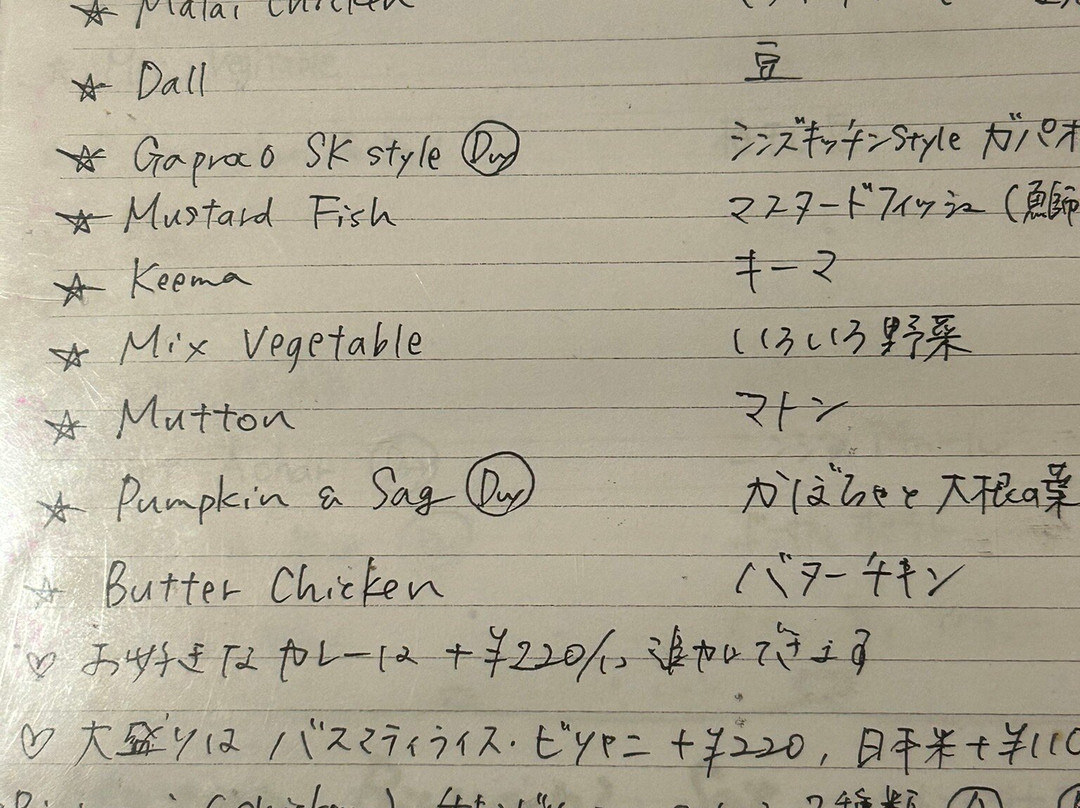 ☆ Malai Chicken
☆ Dall 豆
☆ Gaprao SK style Dry シンズキッチンstyle ガパオ
☆ Mustard Fish マスタードフィッシュ (魚師
☆ Keema キーマ
☆ Mix Vegetable いろいろ野菜
☆ Mutton マトン
☆ Pumpkin & Sag Dry かぼちゃと大根の葉
☆ Butter Chicken バターチキン
♡ お好きなカレーは +¥220/1つ 追加できます
♡ 大盛りは バスマティライス・ビリヤニ +¥220, 日本米+¥110